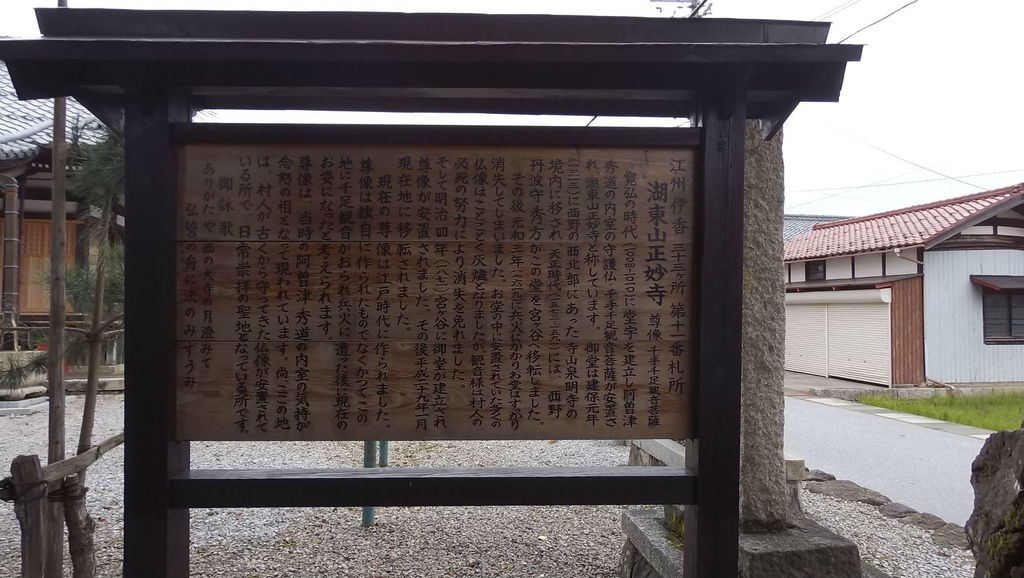 江州伊香三十三所 第十一番札所
湖東山正妙寺 尊像 千手千足観音菩薩
寛弘の時代に堂宇を建立し阿曽津
秀道の内室の守護仏・千手千足観音菩薩が安置さ
れ湖東山正妙寺と称しています。御堂は建保元年
に西野の西北部にあった寺山泉明寺の
境内に移され、天正時代には、西野
丹波守・秀方がこの堂を宮ヶ谷へ移転しました。
その後、元和三年に兵火にかかりお堂はすめり
消失してしまいました。お堂の中に安置されていた多くの
仏像はことごとく灰燼となりましたが観音様は村人の
必死の努力により消失を免れました。
そして明治四年宮ヶ谷に御堂が建立され
尊像が安置されました。その後平成二十九年一月
現在地に移転されました。
現在の尊像は江戸時代に作られました。
尊像は独自に作られたものでなくかつてこの
地に千足観音がおられ兵火に遭った後に現在の
お姿になったと考えられます。
尊像は、当時の阿曽津・秀道の内室の気持が
念怒の相となって現われています。尚、ここの地
は、村人が古くから守ってきた仏像が安置されて
いる所で、日常崇拝の聖地となっている所です。
御詠歌
ありがたや 西の大寺の月澄みて
弘誓の舟に法のみずうみ